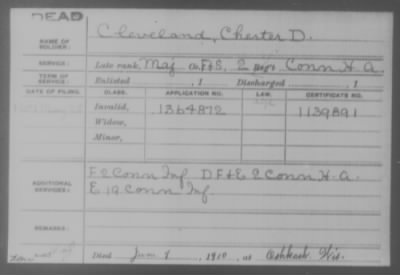 DEAD
NAME OF SOLDIER: Cleveland, Chester D.
SERVICE: Late rank, Maj Co. F&S, 2 Reg't Conn H. A.
TERM OF SERVICE: Enlisted , 1 Discharged , 1
DATE OF FILING. CLASS. APPLICATION NO. LAW. CERTIFICATE NO.
Invalid, 1364872 1139891
Widow,
Minor,
ADDITIONAL SERVICES: F 2 Conn Inf D F & E 2 Conn H. A.
E 19 Conn Inf
REMARKS:
Died June 9, 1910, at Oshkosh Wis.